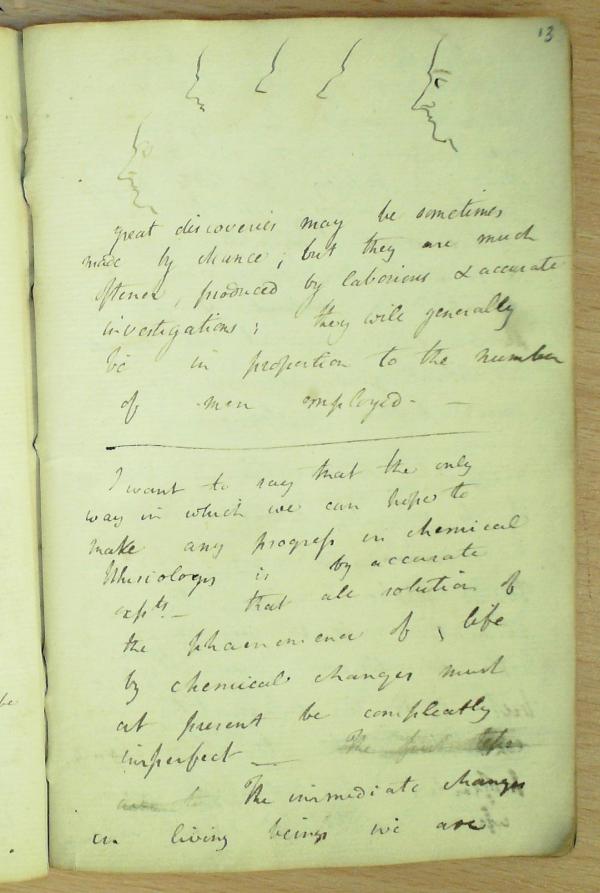 13
great discoveries may be sometimes
made by chance; but they are much
oftener, produced by laborious & accurate
investigations; they will generally
be in proportion to the number
of men employed. —
I want to say that the only
way in which we can hope to
make any progress in chemical
Phisiology is by accurate
expts. — that all solution of
the phaenomena of life
by chemical changes must
at present be compleatly
imperfect — The first steps
are to The immediate changes
in living beings we are